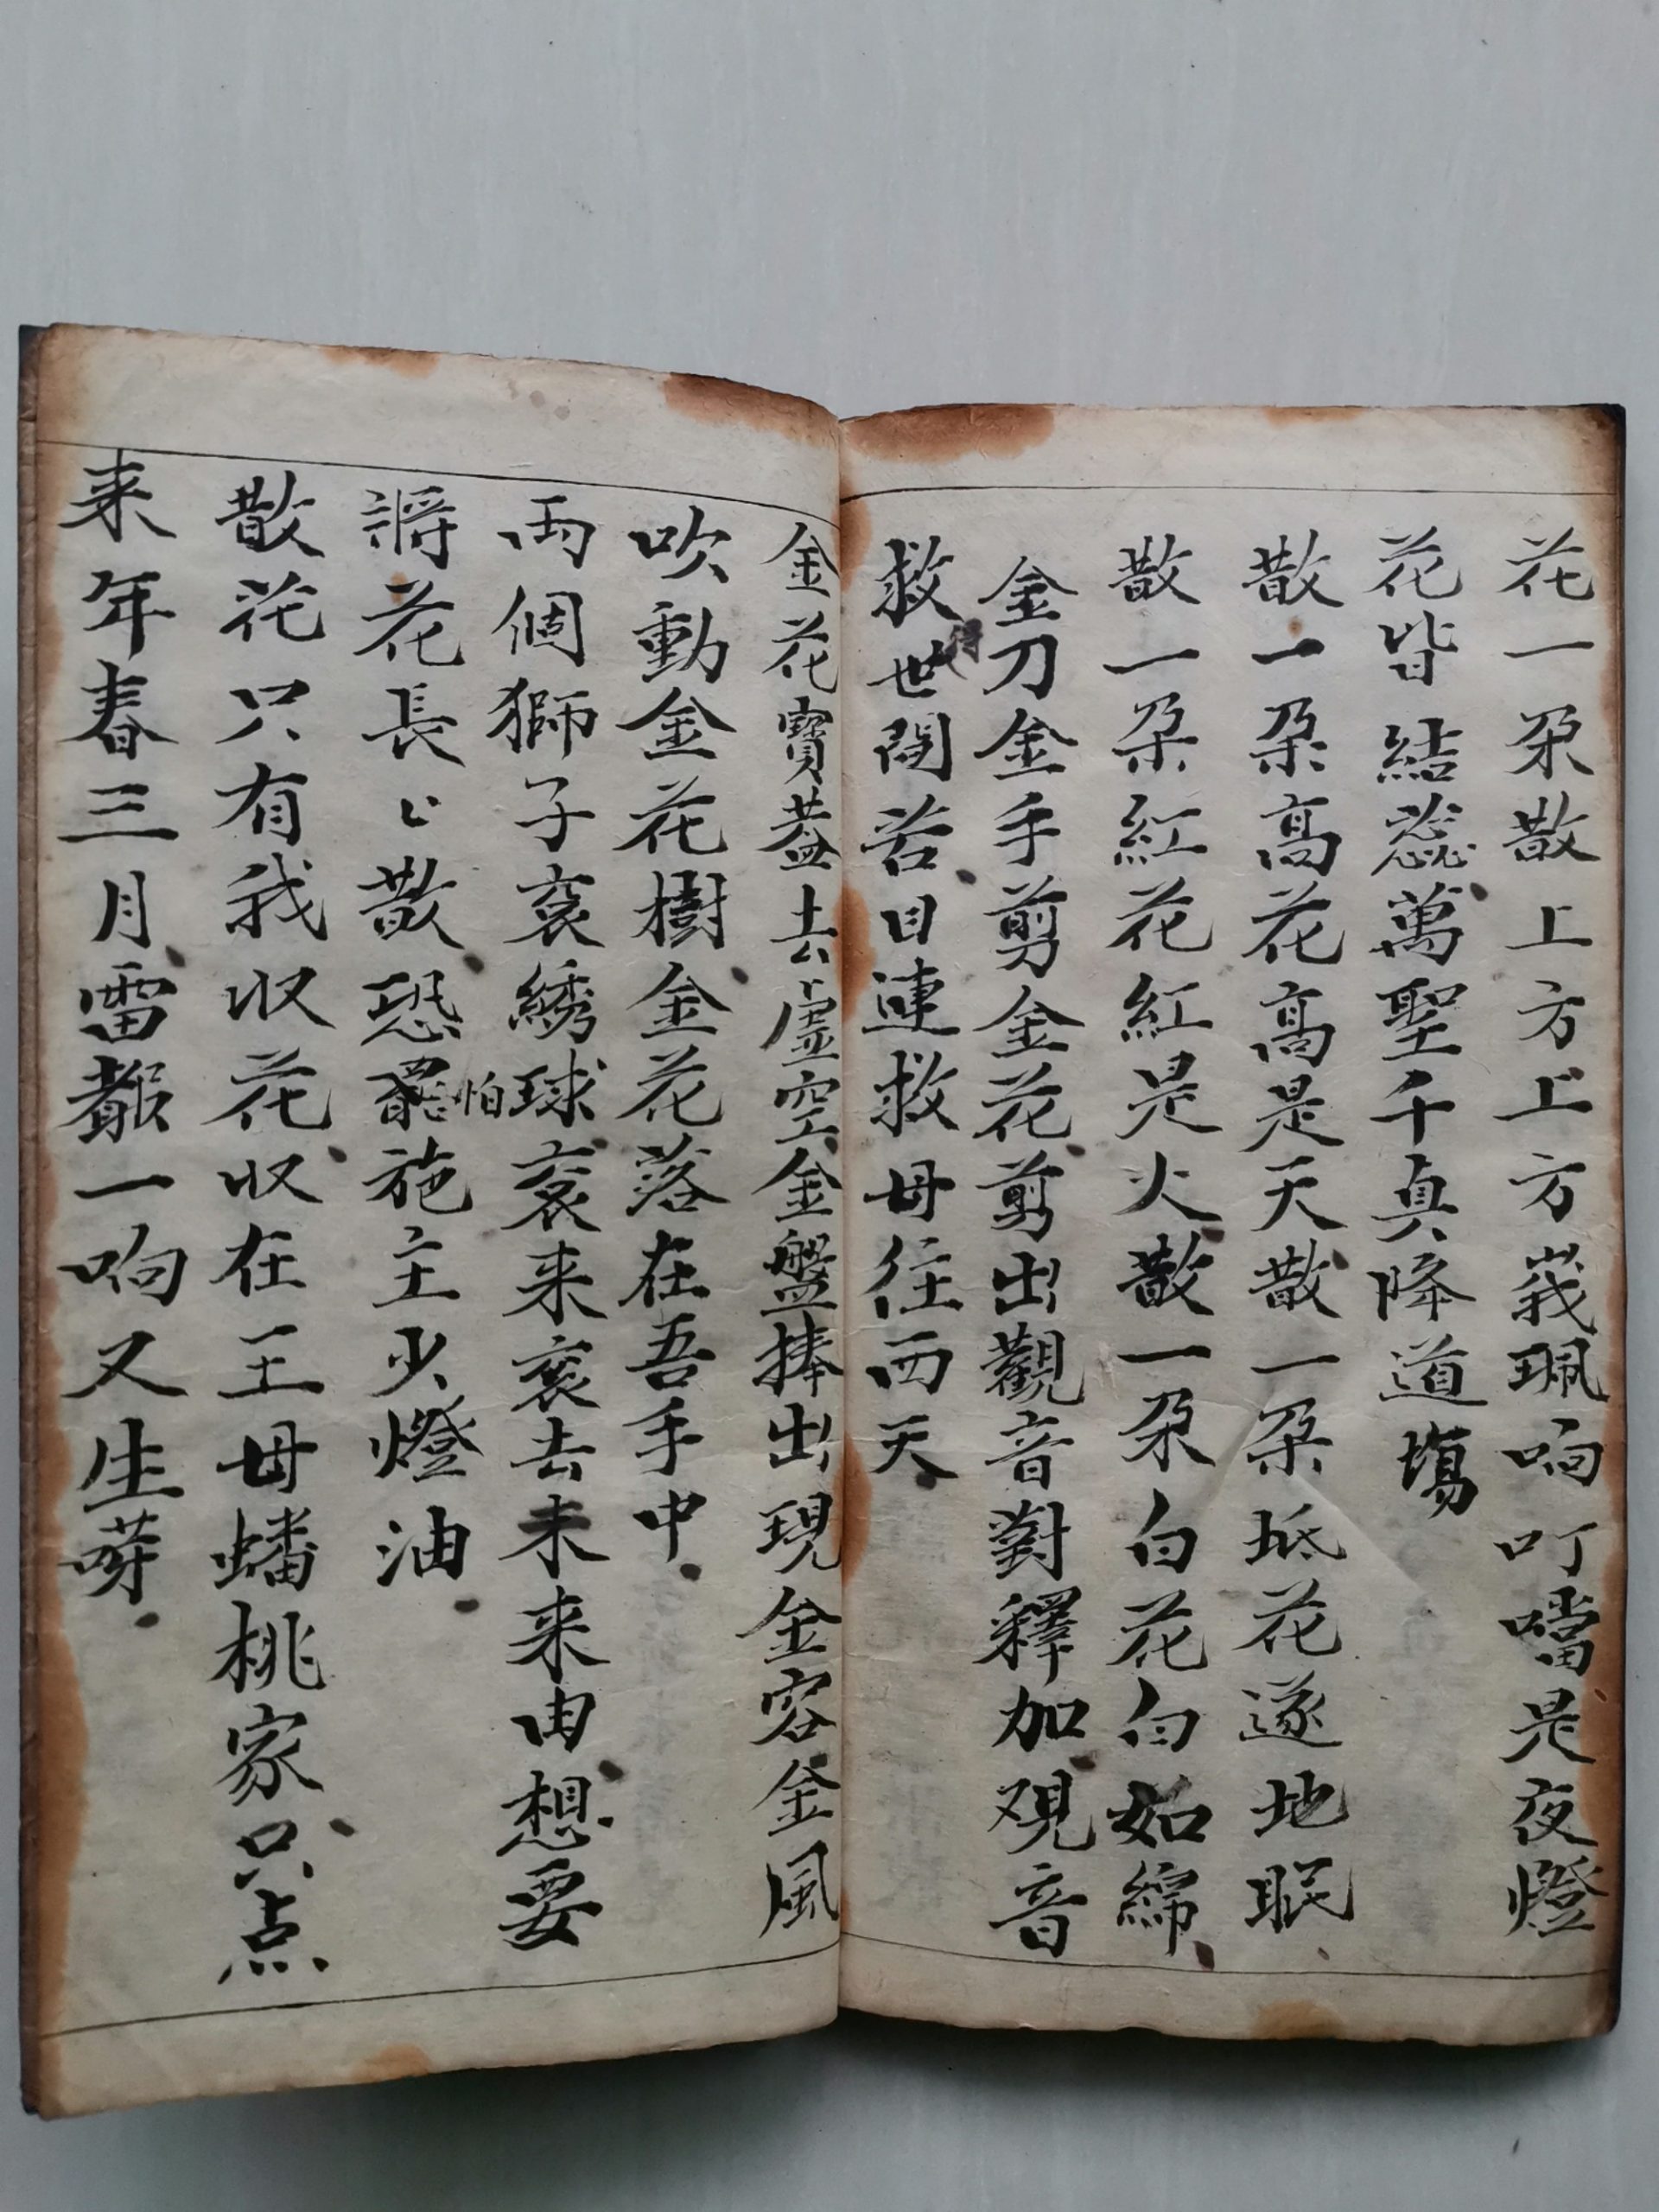 花一朶散上方上方峩珮响叮噹是夜燈
花皆結蕊萬聖千真降道場
散一朶高花高是天散一朶坻花遂地眠
散一朶紅花紅是火散一朶白花白如綿
金刀金手剪金花剪出觀音對釋加观音
救世間苦目連救母往西天
金花寶蓋去虛空金盤捧出現金容金風
吹動金花樹金花落在吾手中
両個獅子衮綉球衮来衮去未来由想要
將花長〻散恐怕施主少燈油
散花只有我收花收在王母蟠桃家只点
来年春三月雷一响又生芽